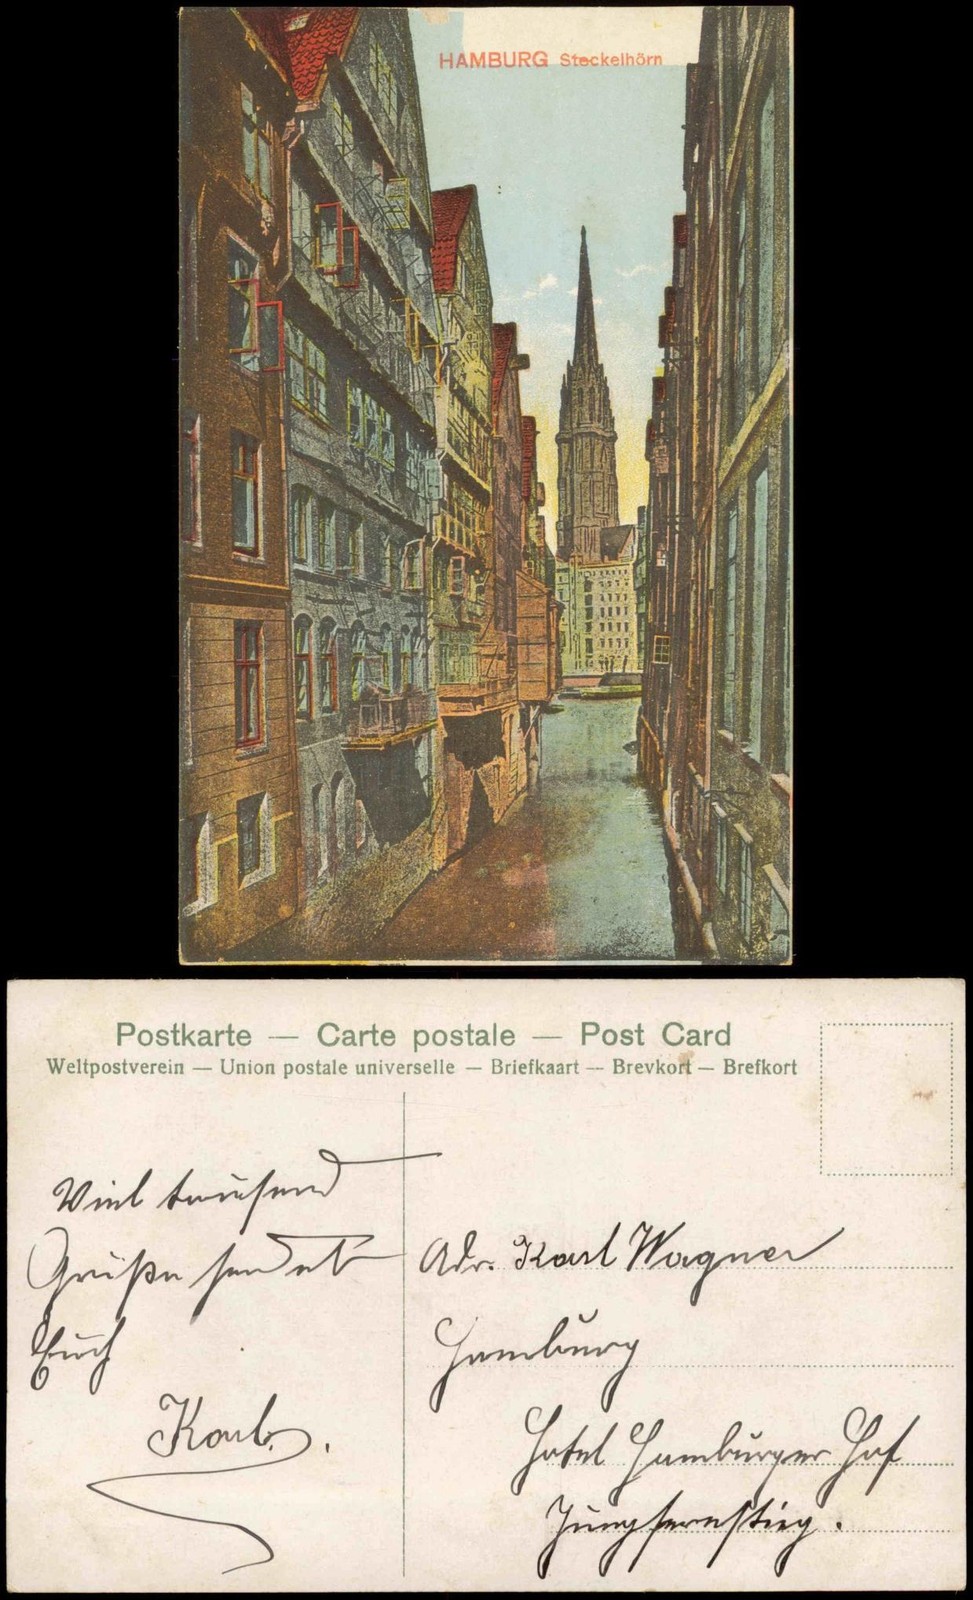 HAMBURG Steckelhörn
Postkarte — Carte postale — Post Card
Weltpostverein — Union postale universelle — Briefkaart — Brevkort — Brefkort
Viel tausend
Grüße sendet
Euch
Karl.
Adr. Karl Wagner
Hamburg
Hotel Hamburger Hof
Jungfernstieg.